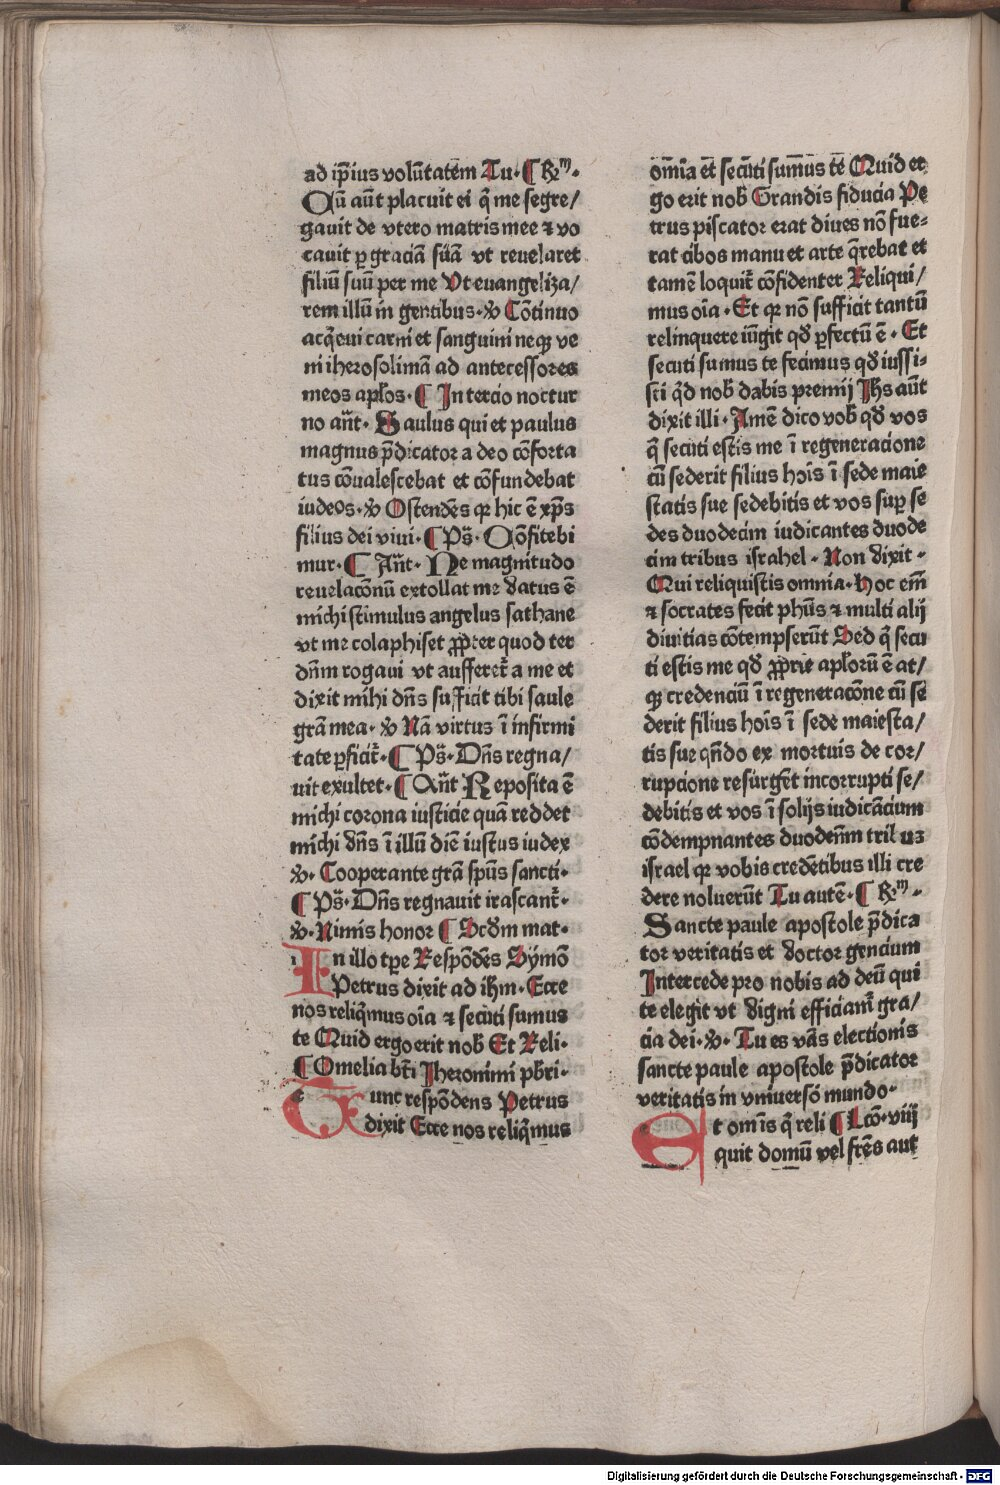 ad ip̄ius volūtatem Tu· ¶ R̄m·
Cū aūt placuit ei q̄ me segre/
gauit de vtero matris mee ⁊ vo
cauit ꝑ graciā suā vt reuelaret
filiū suū per me Vt euangeliza/
rem illū in gentibus· ℣ Cōtinuo
acq̄eui carni et sanguini neqȝ ve
ni iherosolimā ad antecessores
meos aplōs· ¶ In tercio noctur
no an̄t· Saulus qui et paulus
magnus p̄dicator a deo cōforta
tus cōualescebat et cōfundebat
iudeos· ℣ Ostendēs qꝛ hic ē xp̄s
filius dei viui· ¶ Ps̄· Cōfitebi
mur· ¶ An̄t· Ne magnitudo
reuelacōnū extollat me datus ē
michi stimulus angelus sathane
vt me colaphiset ꝓpter quod ter
dn̄m rogaui vt aufferet̄ a me et
dixit mihi dn̄s sufficit tibi saule
grā mea· ℣ Nā virtus ī infirmi
tate ꝑficit̄· ¶ Ps̄· Dn̄s regna/
uit exultet· ¶ An̄t Reposita ē
michi corona iusticie quā reddet
michi dn̄s ī illū diē iustus iudex
℣· Cooperante grā sp̄us sancti·
¶ Ps̄· Dn̄s regnauit irascant̄·
℣· Nimis honor ¶ Scd̄m mat·
In illo tp̄e Respōdēs Symō
Petrus dixit ad ih̄m· Ecce
nos reliq̄mus oīa ⁊ secuti sumus
te Quid ergo erit nob̄ Et Reli·
¶ Omelia bt̄i Jheronimi pb̄ri·
Tunc respōdens Petrus
dixit Ecce nos reliq̄mus
om̄ia et secuti sumus te Quid er
go erit nob̄ Grandis fiducia Pe
trus piscator erat diues nō fue-
rat cibos manu et arte q̄rebat et
tamē loquit̄ cōfidenter Reliqui/
mus oīa· Et qꝛ nō sufficit tantū
relinquere iūgit qd̄ ꝑfectū ē· Et
secuti sumus te fecimus qd̄ iussi-
sti q̄d nob̄ dabis premij Ihs aūt
dixit illi· Amē dico vob̄ qd̄ vos
q̄ secuti estis me ī regeneracione
cū sederit filius hoīs ī sede maie
statis sue sedebitis et vos suꝑ se
des duodecim iudicantes duode
cim tribus israhel· Non dixit·
Qui reliquistis omnia· hoc em̄
⁊ socrates fecit ph̄us ⁊ multi alij
diuitias cōtempserūt Sed q̄ secu
ti estis me qd̄ ꝓprie aplōrū ē at/
qȝ credenciū ī regeneracōne cū se
derit filius hoīs ī sede maiesta/
tis sue qn̄do ex mortuis de cor/
rupcione resurgēt incorrupti se/
debitis et vos ī solijs iudicācium
cōdempnantes duodenīm tribus
israel qꝛ vobis credētibus illi cre
dere noluerūt Tu autē· ¶ R̄m·
Sancte paule apostole p̄dica
tor veritatis et doctor gencium
Intercede pro nobis ad deū qui
te elegit vt digni efficiam̄ gra/
cia dei· ℣· Tu es vas electionis
sancte paule apostole p̄dicator
veritatis in vniuersō mundo·
Et om̄is q̄ reli ¶ Lcō· viij
quit domū vel frēs aut
Digitalisierung gefördert durch die Deutsche Forschungsgemeinschaft - DFG